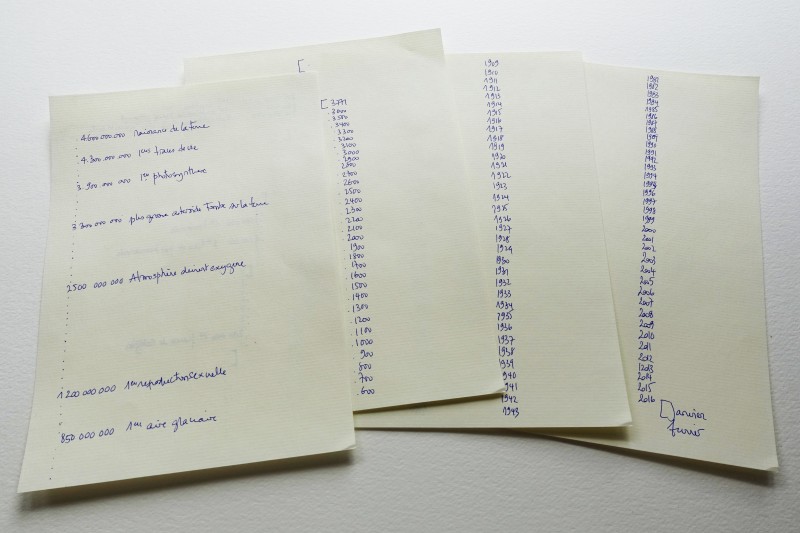 4 600 000.000 naissance de la terre
4.300.000.000 1ères traces de vie
3.900.000 000 1ère photosynthèse
3 300 000 000 plus grosse asteroïde tombe sur la terre
2500 000 000 Atmosphère devient oxygène
1 200 000 000 1ère reproduction sexuelle
850 000 000 1ère aire glaciaire
[
[ 3771
3600
3500
3400
3300
3200
3100
3000
2900
2800
2700
2600
2500
2400
2300
2200
2100
2000
1900
1800
1700
1600
1500
1400
1300
1200
1100
1000
900
800
700
600
1909
1910
1911
1912
1913
1914
1915
1916
1917
1918
1919
1920
1921
1922
1923
1924
1925
1926
1927
1928
1929
1930
1931
1932
1933
1934
1935
1936
1937
1938
1939
1940
1941
1942
1943
1982
1983
1984
1985
1986
1987
1988
1989
1990
1991
1992
1993
1994
1996
1997
1998
1999
2000
2001
2002
2003
2004
2005
2006
2007
2008
2009
2010
2011
2012
2013
2014
2015
2016
[Janvier
février